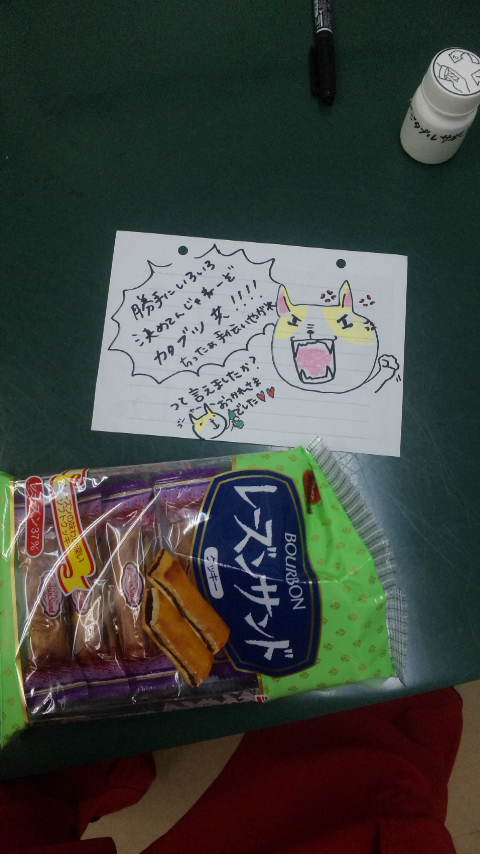 勝手にいろいろ
決めてんじゃねーど
カタブツ 女!!!!
ちったぁ手伝いやがれ
って言えましたか?
おつかれさま
でした
BOURBON
レーズンサンド
クッキー
レーズン37%